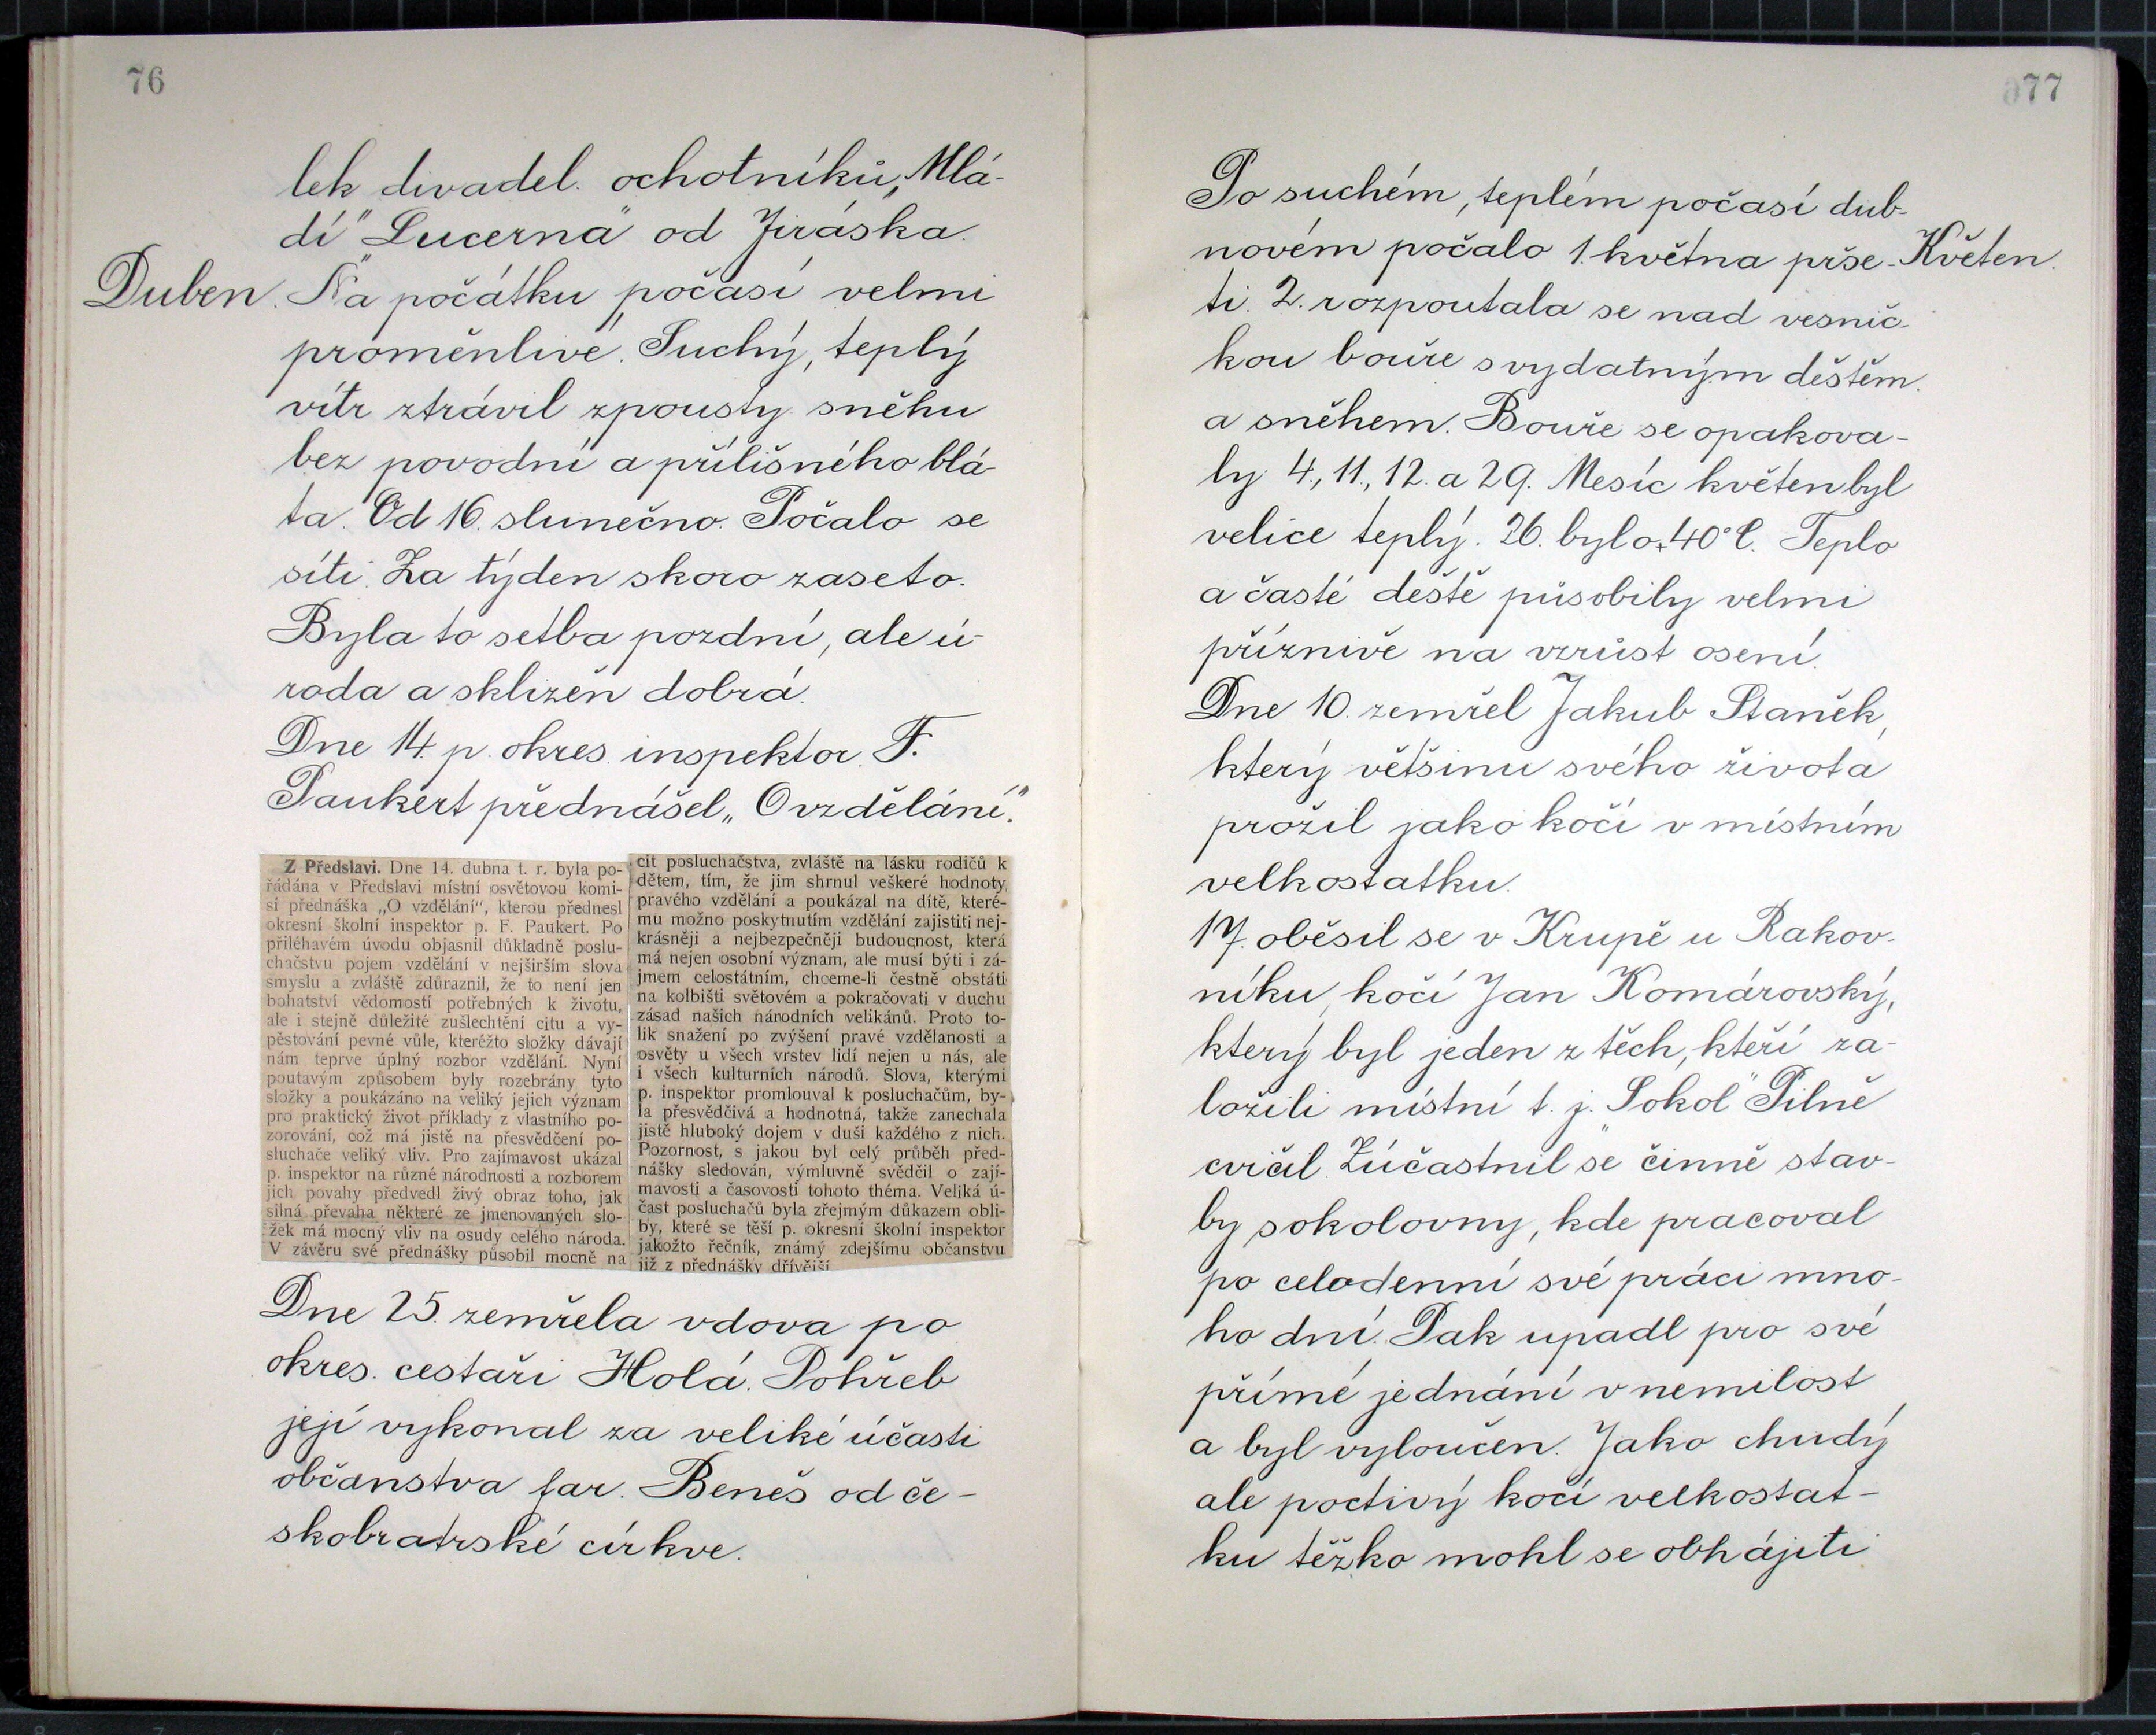 76
lek divadel. ochotníků „Mlá-
dí" „Lucerna" od Jiráska.
Duben. Na počátku počasí velmi
proměnlivé. Suchý, teplý
vítr ztrávil zpousty sněhu
bez povodní a přílišného blá-
ta. Od 16. slunečno. Počalo se
síti. Za týden skoro zaseto.
Byla to setba pozdní, ale ú-
roda a sklizeň dobrá.
Dne 14. p. okres. inspektor F.
Paukert přednášel „O vzdělání."
Z Předslavi. Dne 14. dubna t. r. byla po-
řádána v Předslavi místní osvětovou komi-
si přednáška „O vzdělání", kterou přednesl
okresní školní inspektor p. F. Paukert. Po
přiléhavém úvodu objasnil důkladně poslu-
chačstvu pojem vzdělání v nejširším slova
smyslu a zvláště zdůraznil, že to není jen
bohatství vědomostí potřebných k životu,
ale i stejně důležité zušlechtění citu a vy-
pěstování pevné vůle, kteréžto složky dávají
nám teprve úplný rozbor vzdělání. Nyní
poutavým způsobem byly rozebrány tyto
složky a poukázáno na veliký jejich význam
pro praktický život příklady z vlastního po-
zorování, což má jistě na přesvědčení po-
sluchače veliký vliv. Pro zajímavost ukázal
p. inspektor na různé národnosti a rozborem
jich povahy předvedl živý obraz toho, jak
silná převaha některé ze jmenovaných slo-
žek má mocný vliv na osudy celého národa.
V závěru své přednášky působil mocně na
cit posluchačstva, zvláště na lásku rodičů k
dětem, tím, že jim shrnul veškeré hodnoty
pravého vzdělání a poukázal na dítě, které-
mu možno poskytnutím vzdělání zajistiti nej-
krásněji a nejbezpečněji budoucnost, která
má nejen osobní význam, ale musí býti i zá-
jmem celostátním, chceme-li čestně obstáti
na kolbišti světovém a pokračovati v duchu
zásad našich národních velikánů. Proto to-
lik snažení po zvýšení pravé vzdělanosti a
osvěty u všech vrstev lidí nejen u nás, ale
i všech kulturních národů. Slova, kterými
p. inspektor promlouval k posluchačům, by-
la přesvědčivá a hodnotná, takže zanechala
jistě hluboký dojem v duši každého z nich.
Pozornost, s jakou byl celý průběh před-
nášky sledován, výmluvně svědčil o zají-
mavosti a časovosti tohoto théma. Veliká ú-
čast posluchačů byla zřejmým důkazem obli-
by, které se těší p. okresní školní inspektor
jakožto řečník, známý zdejšímu občanstvu
již z přednášky dřívější
Dne 25. zemřela vdova po
okres. cestaři Holá. Pohřeb
její vykonal za veliké účasti
občanstva far. Beneš od če-
skobratrské církve.
77
Po suchém, teplém počasí dub-
novém počalo 1. května prše- Květen.
ti. 2. rozpoutala se nad vesnič-
kou bouře s vydatným deštěm
a sněhem. Bouře se opakova-
ly 4., 11., 12. a 29. Mesíc květen byl
velice teplý. 26. bylo +40°C. Teplo
a časté deště působily velmi
příznivě na vzrůst osení.
Dne 10. zemřel Jakub Staněk,
který většinu svého života
prožil jako kočí v místním
velkostatku.
17. oběsil se v Krupě u Rakov-
níku, kočí Jan Komárovský,
který byl jeden z těch, kteří za-
ložili místní t. j. „Sokol" Pilně
cvičil. Zúčastnil se činně stav-
by sokolovny, kde pracoval
po celodenní své práci mno-
ho dní. Pak upadl pro své
přímé jednání v nemilost
a byl vyloučen. Jako chudý,
ale poctivý kočí velkostat-
ku těžko mohl se obhájiti